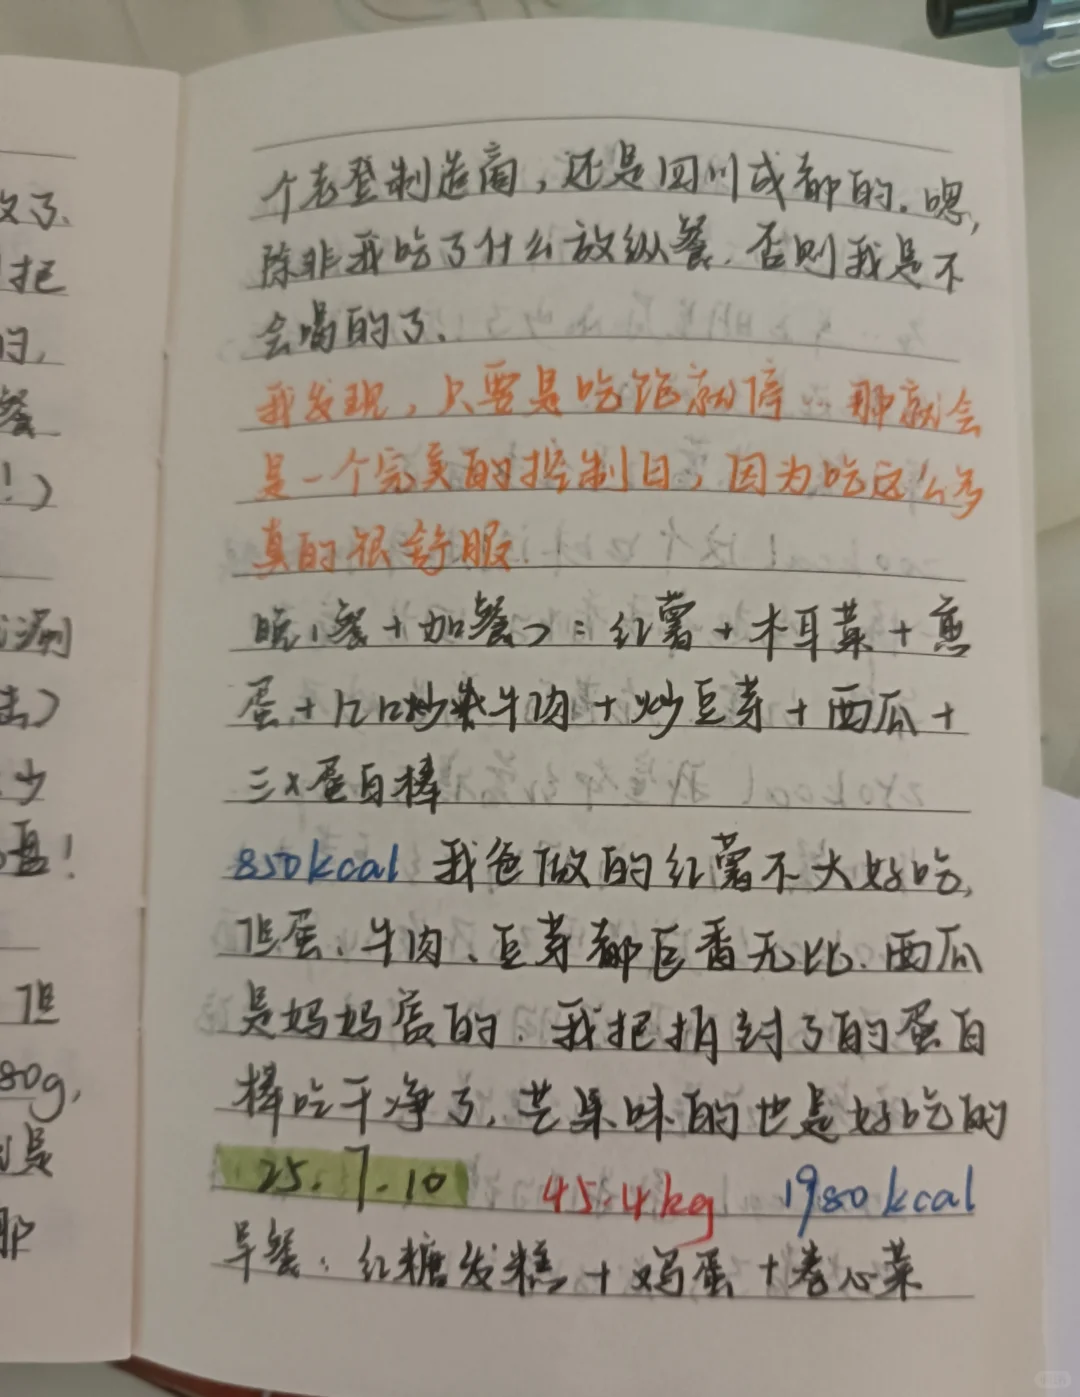 个老登制造商，还是四川成都的。嗯，
除非我吃了什么放纵餐，否则我是不
会喝的了。
我发现，只要是吃饱就停，那就会
是一个完美的控制日，因为吃这么多
真的很舒服
晚餐（+加餐）：红薯+木耳菜+煎
蛋+炒牛肉+炒豆芽+西瓜+
三×蛋白棒
850kcal 我爸做的红薯不大好吃，
但蛋、牛肉、豆芽都巨香无比。西瓜
是妈妈尝的。我把捎到了的蛋白
棒吃干净了，芒果味的也是好吃的
25.7.10 45.4kg 1980kcal
早餐：红糖发糕+鸡蛋+卷心菜
了
把
的，
餐
！）
涮
击）
少
直！
但
80g，
是
那